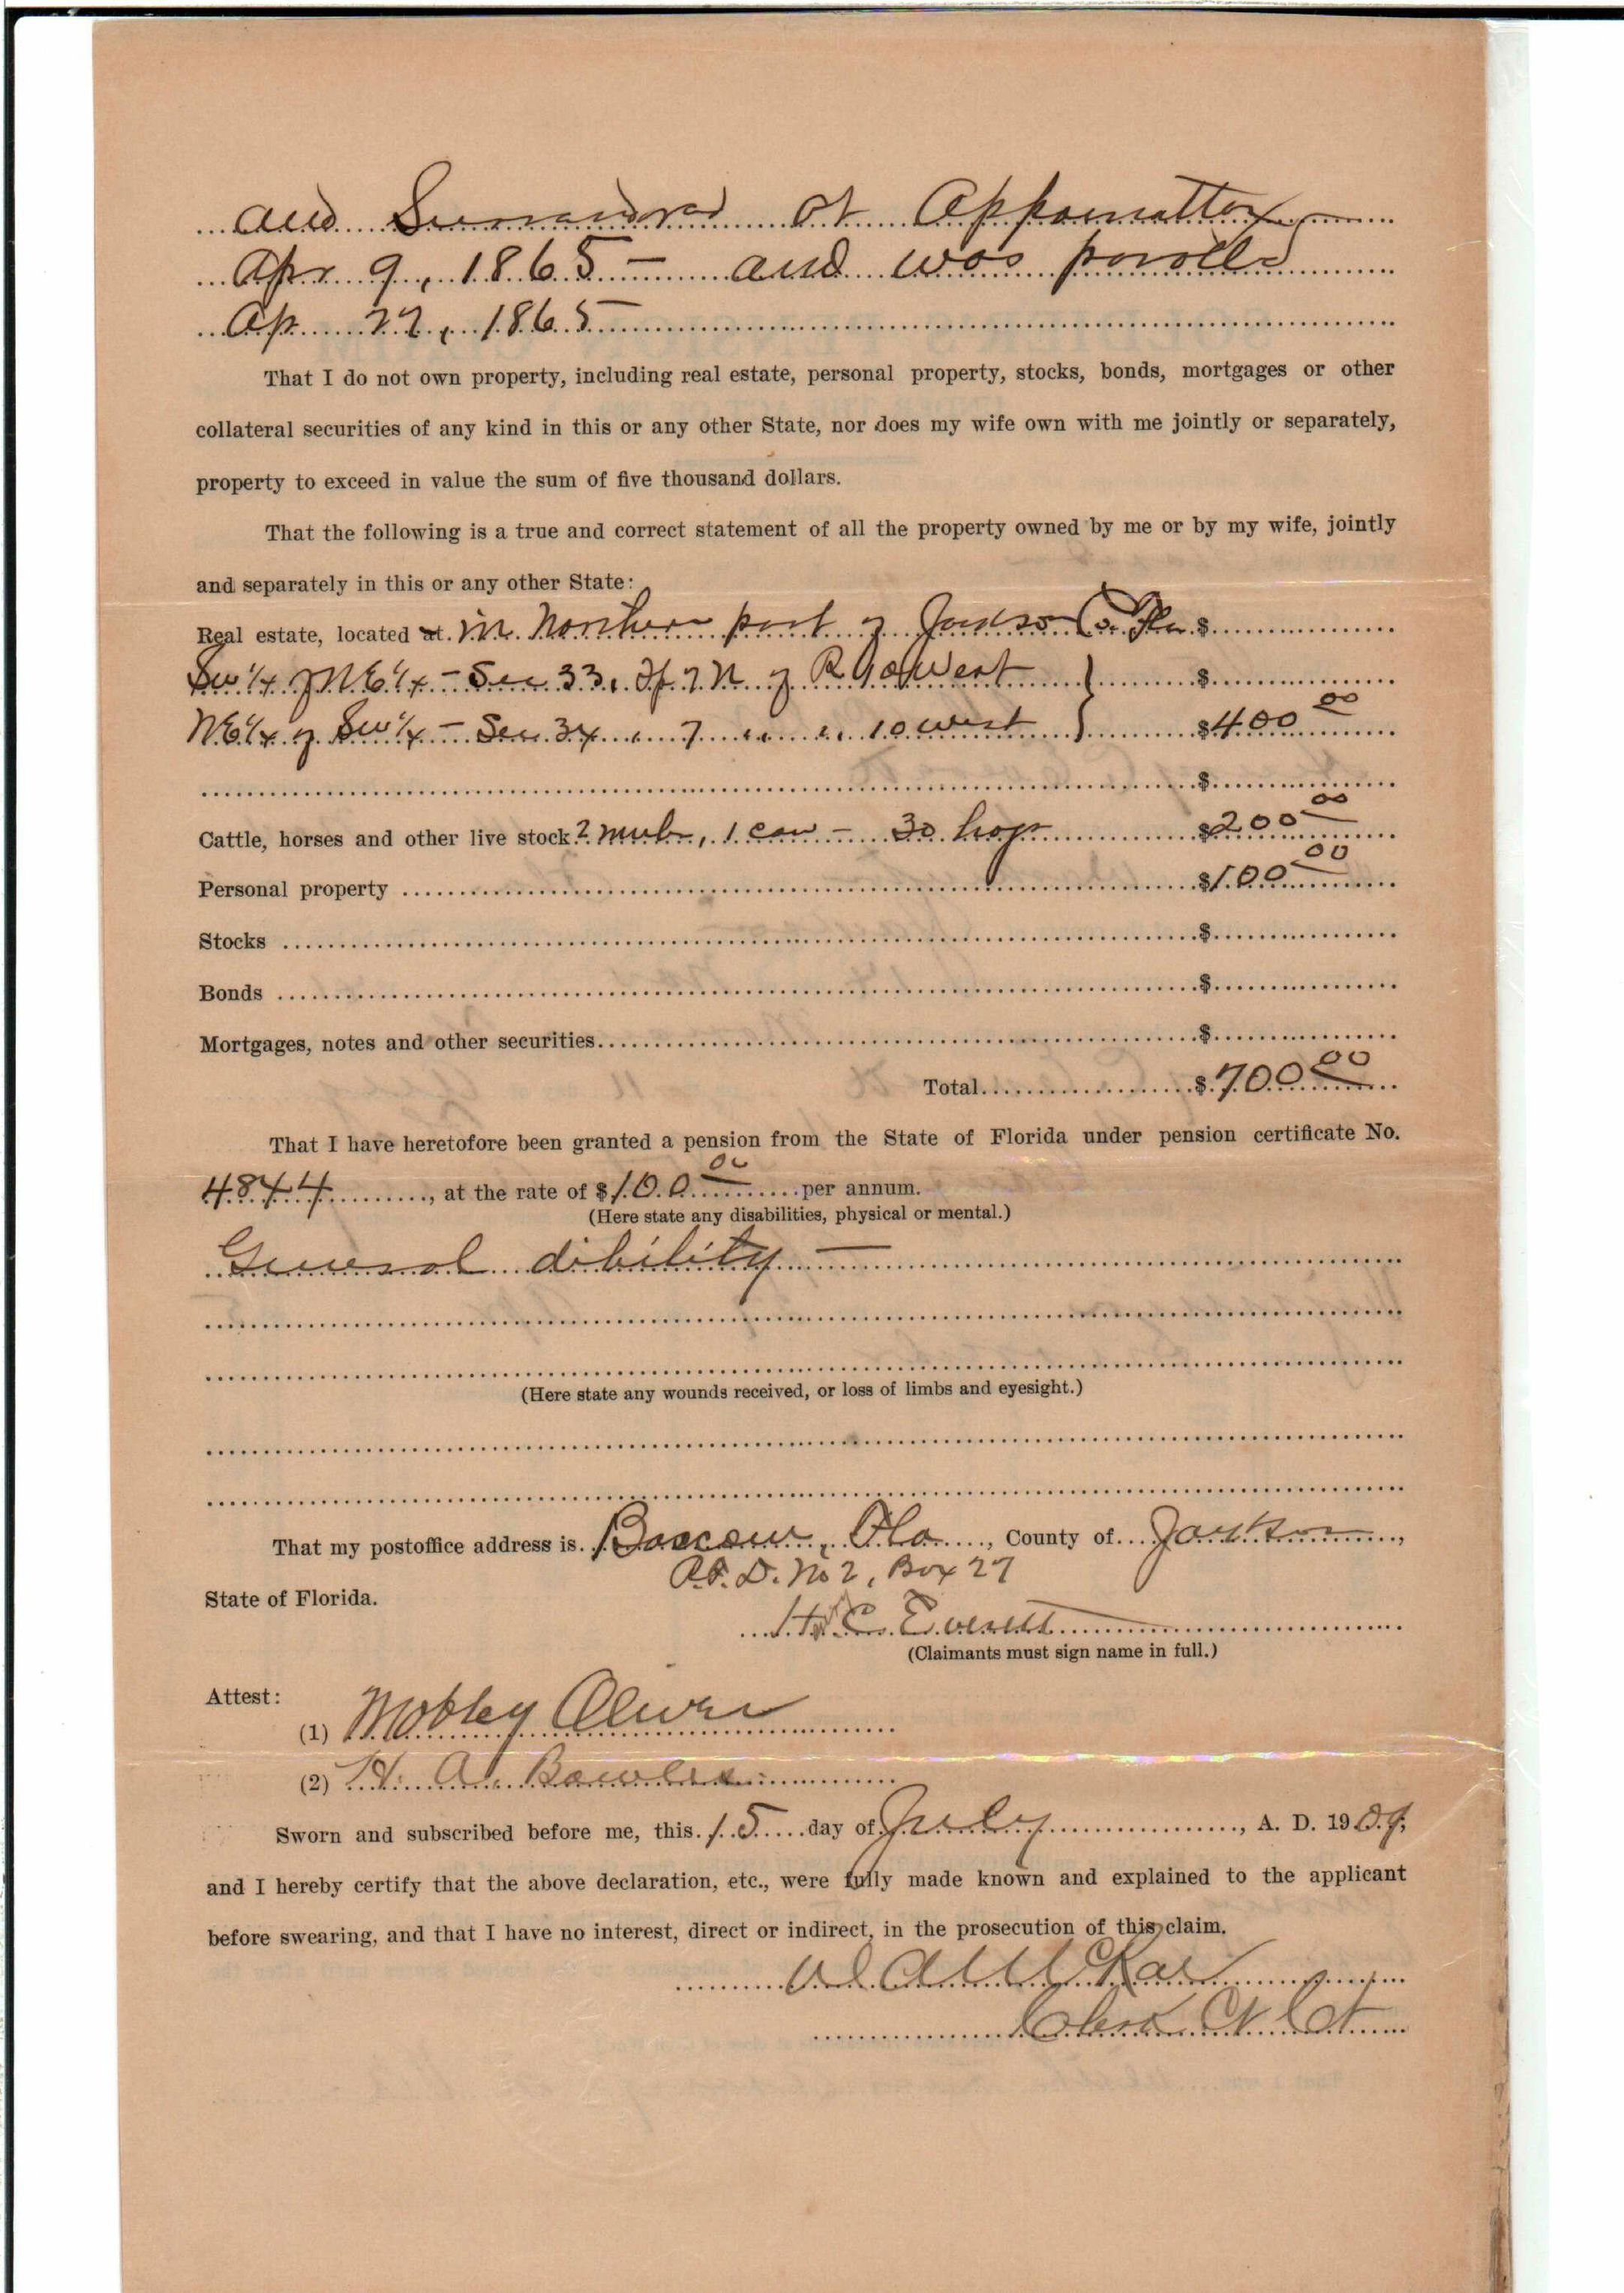 and Surrendred at Appomattox
Apr 9, 1865 – and was parolled
Ap 22, 1865
That I do not own property, including real estate, personal property, stocks, bonds, mortgages or other
collateral securities of any kind in this or any other State, nor does my wife own with me jointly or separately,
property to exceed in value the sum of five thousand dollars.
That the following is a true and correct statement of all the property owned by me or by my wife, jointly
and separately in this or any other State:
Real estate, located at in Northern part of Jackson Co. Fla $
SW 1/4 of NE 1/4 – Sec 33, Tp 7 N of R 10 West } $
NE 1/4 of SW 1/4 – Sec 34 " 7 " " " 10 West } $400 00
$
Cattle, horses and other live stock 2 mules, 1 cow – 30 hogs $200 00
Personal property $100 00
Stocks $
Bonds $
Mortgages, notes and other securities $
Total $700 00
That I have heretofore been granted a pension from the State of Florida under pension certificate No.
4844, at the rate of $100 00 per annum.
(Here state any disabilities, physical or mental.)
General dibility –
(Here state any wounds received, or loss of limbs and eyesight.)
That my postoffice address is Bascom, Fla, County of Jackson,
R.F.D. No 2, Box 27
State of Florida.
H. C. Everett
(Claimants must sign name in full.)
Attest:
(1) Mobley Oliver
(2) H. A. Bowles
Sworn and subscribed before me, this 15 day of July, A. D. 1909,
and I hereby certify that the above declaration, etc., were fully made known and explained to the applicant
before swearing, and that I have no interest, direct or indirect, in the prosecution of this claim.
Clerk Ct